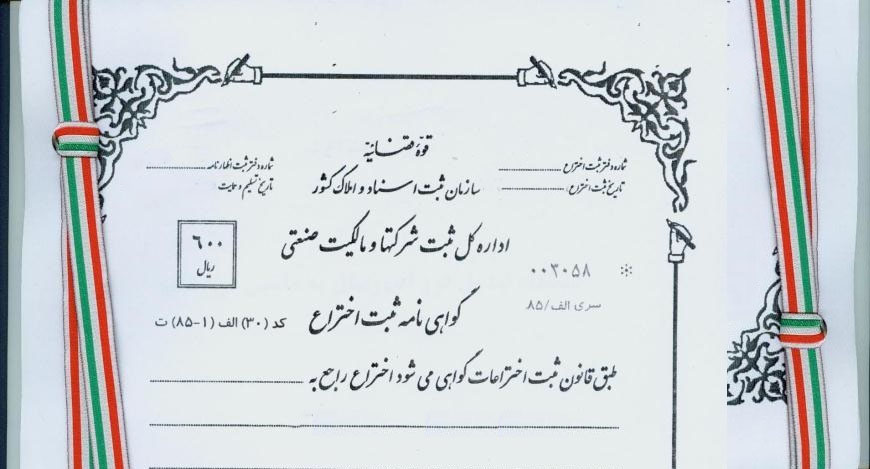 قوّهٔ قضائیّه
شماره دفتر ثبت اختراع
شماره دفتر ثبت اظهارنامه
سازمان ثبت اسناد و املاک کشور
تاریخ ثبت اختراع:
تاریخ تسلیم و حمایت
اداره کل ثبت شرکتها و مالکیت صنعتی
۶۰۰
ریال
۰۰۳۰۵۸
سری الف/۸۵
گواهی نامه ثبت اختراع
کد (۳۰) الف (۱-۸۵) ت
طبق قانون ثبت اختراعات گواهی می شود اختراع راجع به